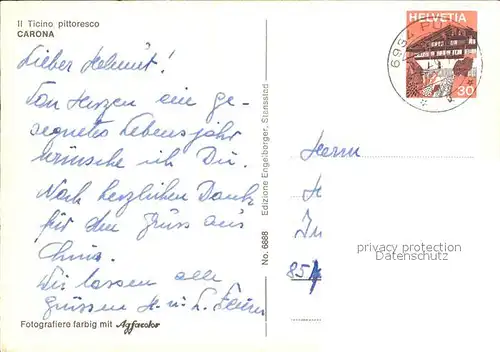 Il Ticino pittoresco
CARONA
HELVETIA
30
Lieber Helmut!
Von Herzen ein ge-
segnetes Lebensjahr
wünsche ich Dir.
Noch herzlichen Dank
für den Gruss aus
China.
Wir lassen alle
grüssen H. u. L.
Fotografiero farbig mit Agfacolor
No. 6688 Edizione Engelberger, Stansstad
6957
Herrn
H
In
85
privacy protection
Datenschutz